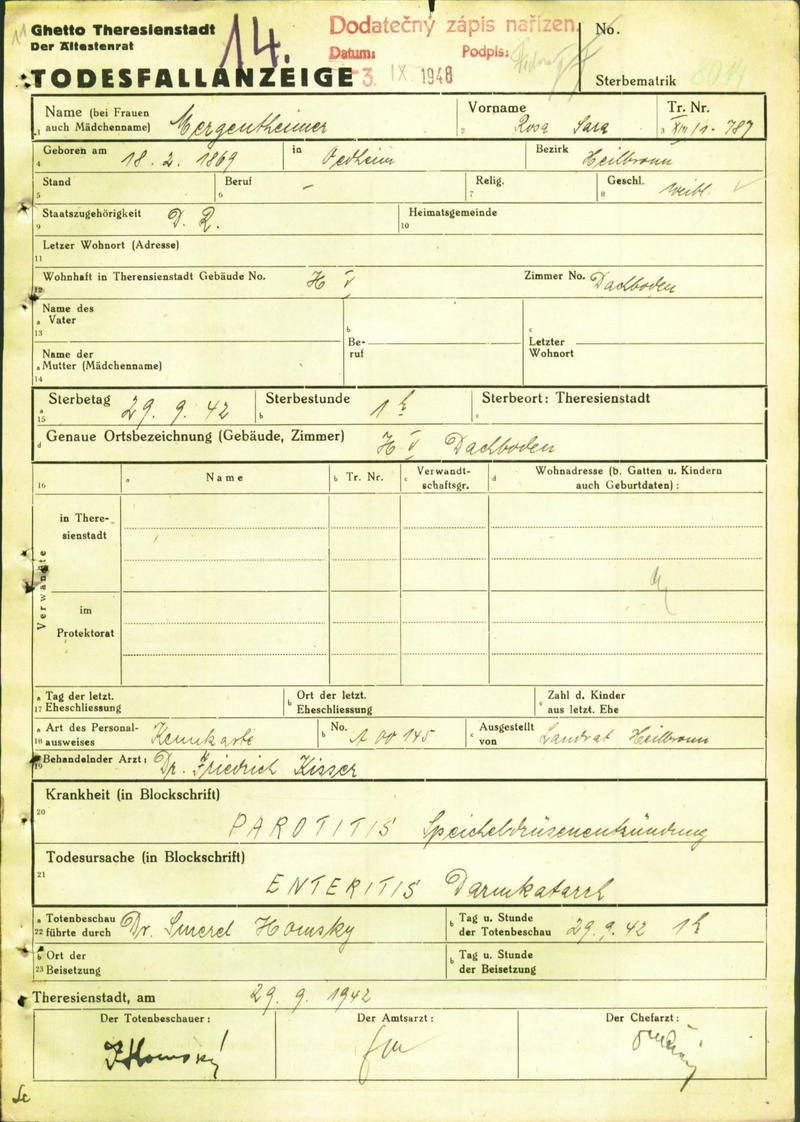 11
Ghetto Theresienstadt
Der Ältestenrat
14.
Dodatečný zápis nařízen.
Datum: Podpis:
-3. IX 1948
No.
TODESFALLANZEIGE
Sterbematrik
Name (bei Frauen auch Mädchenname) Mergentheimer
1
Vorname Rosa Sara
2
Tr. Nr. XIII/1-787
3
Geboren am 18. 2. 1869 in Oedheim Bezirk Heilbronn
4
Stand Beruf – Relig. Geschl. weibl.
5 6 7 8
Staatszugehörigkeit D. R. Heimatsgemeinde
9 10
Letzer Wohnort (Adresse)
11
Wohnhaft in Theresienstadt Gebäude No. H V Zimmer No. Dachboden
12
Name des Vater
a
13
Name der Mutter (Mädchenname)
a
14
b Be-ruf
c Letzter Wohnort
Sterbetag 29. 9. 42 Sterbestunde 1 h Sterbeort: Theresienstadt
a 15 b c
d Genaue Ortsbezeichnung (Gebäude, Zimmer) H V Dachboden
16 a Name b Tr. Nr. c Verwandt-schaftsgr. d Wohnadresse (b. Gatten u. Kindern auch Geburtdaten):
Verwandte
in There-sienstadt
im Protektorat
a 17 Tag der letzt. Eheschliessung b Ort der letzt. Eheschliessung c Zahl d. Kinder aus letzt. Ehe
a 18 Art des Personal-ausweises Kennkarte b No. A 00145 c Ausgestellt von Landrat Heilbronn
19 Behandelnder Arzt: Dr. Friedrich Kisser
Krankheit (in Blockschrift)
20
PAROTITIS Speicheldrüsenentzündung
Todesursache (in Blockschrift)
21
ENTERITIS Darmkatarrh
a 22 Totenbeschau führte durch Dr. Homsky b Tag u. Stunde der Totenbeschau 29. 9. 42 1 h
b 23 Ort der Beisetzung b Tag u. Stunde der Beisetzung
Theresienstadt, am 29. 9. 1942
Der Totenbeschauer: Der Amtsarzt: Der Chefarzt: